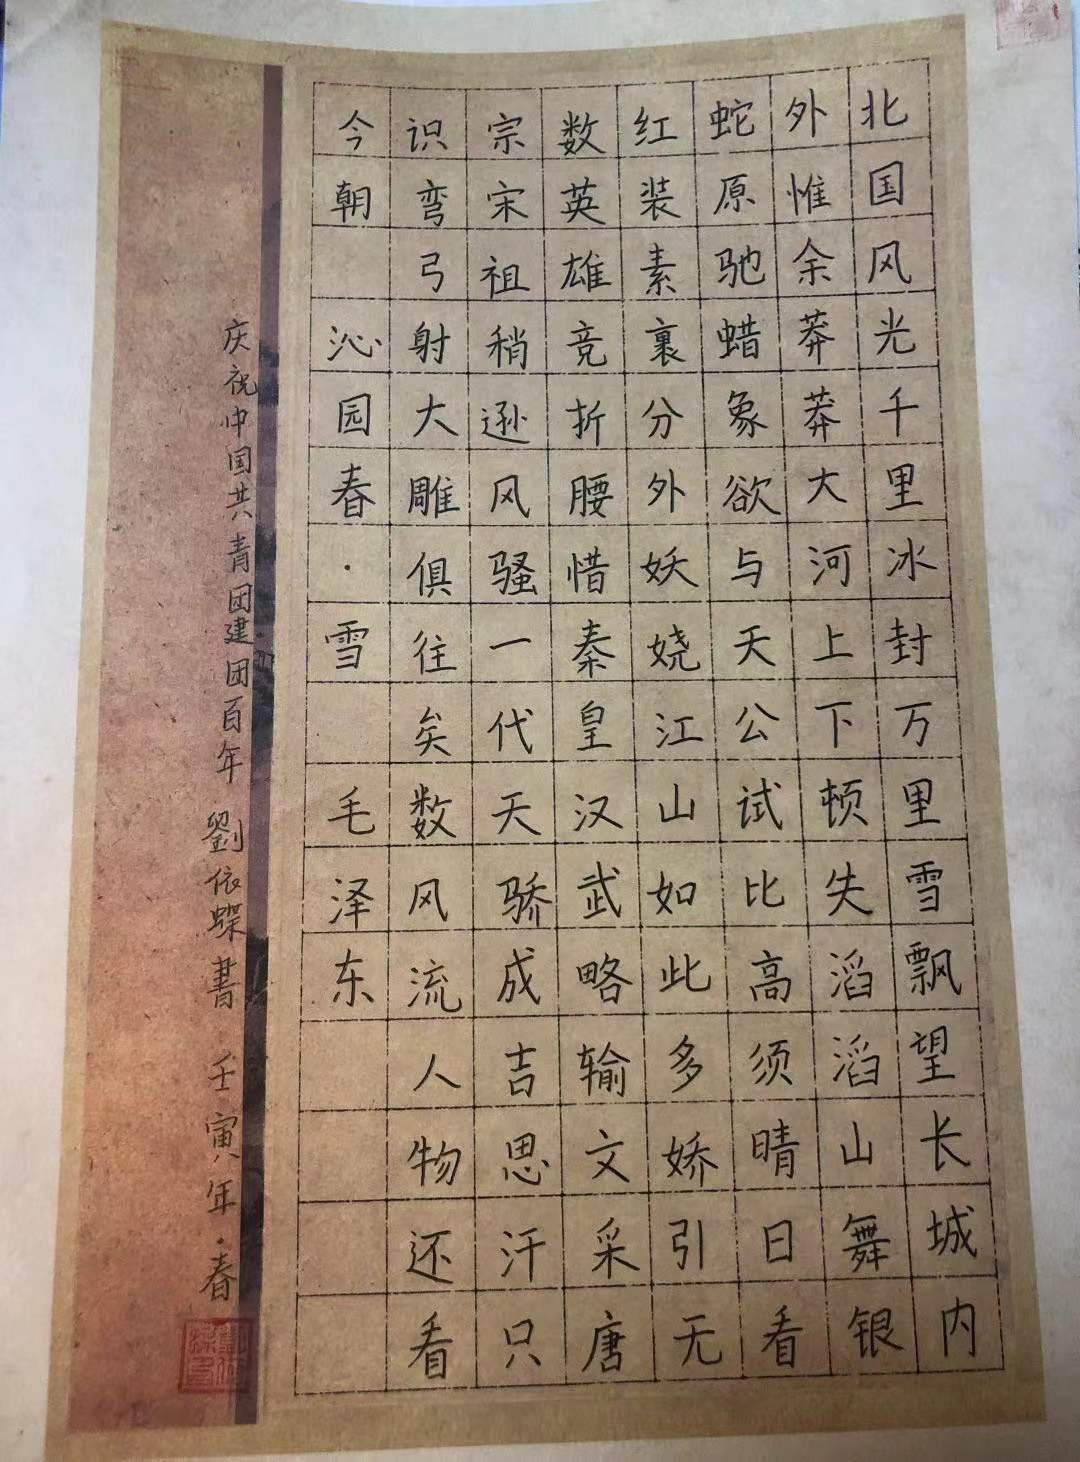 北国风光千里冰封万里雪飘望长城内
外惟余莽莽大河上下顿失滔滔山舞银
蛇原驰蜡象欲与天公试比高须晴日看
红装素裹分外妖娆江山如此多娇引无
数英雄竞折腰惜秦皇汉武略输文采唐
宗宋祖稍逊风骚一代天骄成吉思汗只
识弯弓射大雕俱往矣数风流人物还看
今朝 沁园春·雪 毛泽东
庆祝中国共青团建团百年 劉依蝶書 壬寅年·春